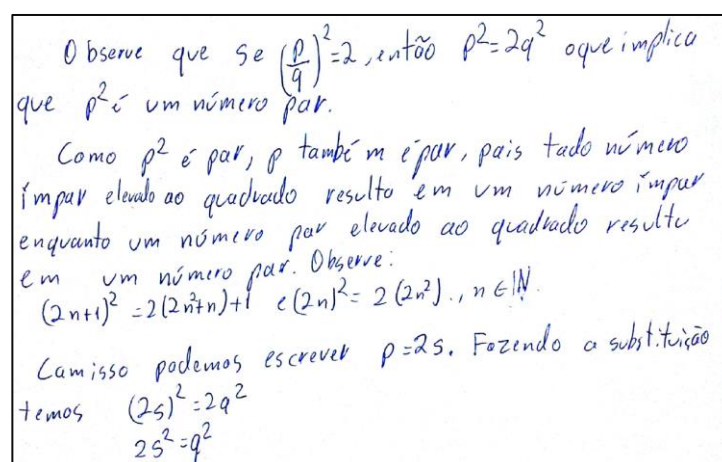 Observe que se (p/q)²=2, então p²=2q² oque implica
que p² é um número par.
Como p² é par, p também é par, pois todo número
ímpar elevado ao quadrado resulta em um número ímpar
enquanto um número par elevado ao quadrado resulta
em um número par. Observe:
(2n+1)² = 2(2n²+n)+1 e (2n)² = 2(2n²)., n ∈ ℕ.
Com isso podemos escrever p=2s. Fazendo a substituição
temos (2s)² = 2q²
2s² = q²